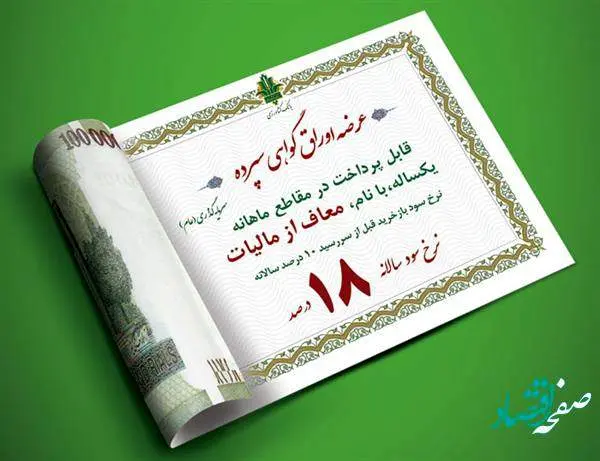 بانک کشاورزی
عرضه اوراق گواهی سپرده
سرمایه گذاری (عام)
قابل پرداخت در مقاطع ماهانه
یکساله، با نام، معاف از مالیات
نرخ سود بازخرید قبل از سررسید ۱۰ درصد سالانه
نرخ سود سالانه
۱۸ درصد
100000
صفحه اقتصاد